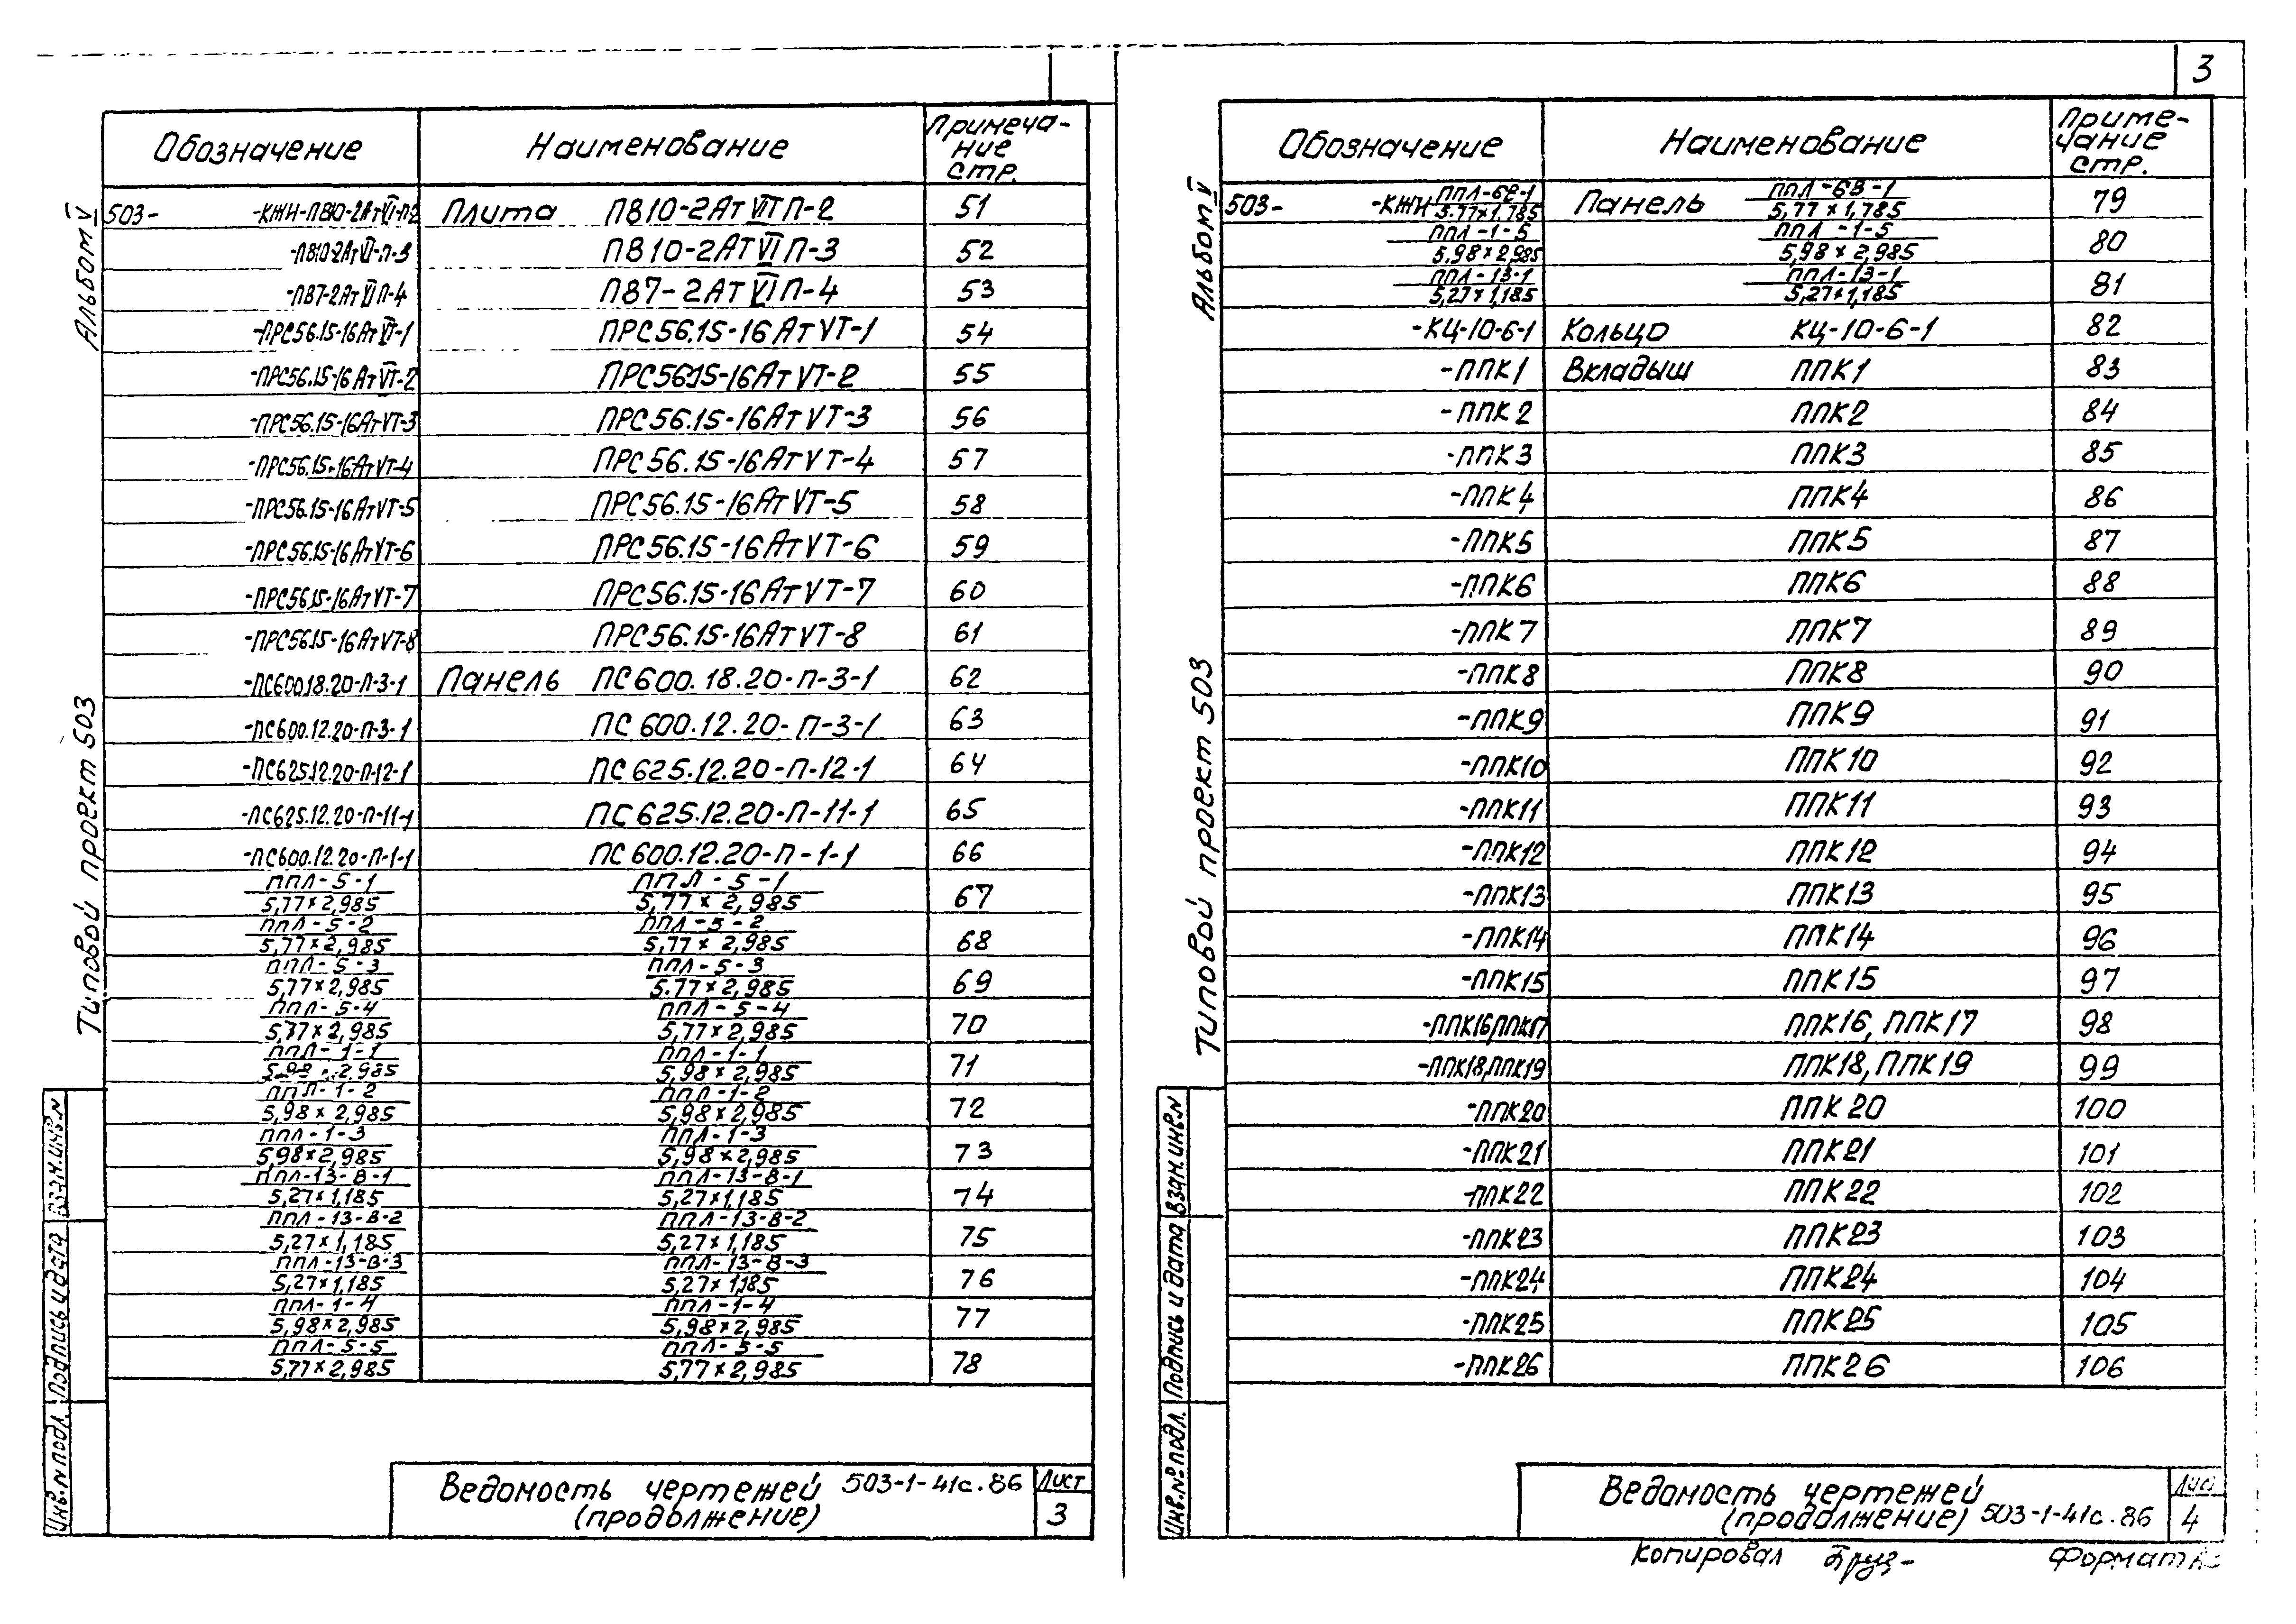 3
Альбом V
Типовой проект 503
Обозначение Наименование Примеча-
ние
стр.
503- -КЖИ-П810-2АтVI-П2 Плита П810-2АтVIП-2 51
-П810-2АтVI-П-3 П810-2АтVIП-3 52
-П87-2АтVIП-4 П87-2АтVIП-4 53
-ПРС56.15-16АтVТ-1 ПРС56.15-16АтVТ-1 54
-ПРС56.15-16АтVТ-2 ПРС56.15-16АтVТ-2 55
-ПРС56.15-16АтVТ-3 ПРС56.15-16АтVТ-3 56
-ПРС56.15-16АтVТ-4 ПРС56.15-16АтVТ-4 57
-ПРС56.15-16АтVТ-5 ПРС56.15-16АтVТ-5 58
-ПРС56.15-16АтVТ-6 ПРС56.15-16АтVТ-6 59
-ПРС56.15-16АтVТ-7 ПРС56.15-16АтVТ-7 60
-ПРС56.15-16АтVТ-8 ПРС56.15-16АтVТ-8 61
-ПС600.18.20-П-3-1 Панель ПС600.18.20-П-3-1 62
-ПС600.12.20-П-3-1 ПС600.12.20-П-3-1 63
-ПС625.12.20-П-12-1 ПС625.12.20-П-12-1 64
-ПС625.12.20-П-11-1 ПС625.12.20-П-11-1 65
-ПС600.12.20-П-1-1 ПС600.12.20-П-1-1 66
ППЛ-5-1 ППЛ-5-1
5,77×2,985 5,77×2,985 67
ППЛ-5-2 ППЛ-5-2
5,77×2,985 5,77×2,985 68
ППЛ-5-3 ППЛ-5-3
5,77×2,985 5.77×2,985 69
ППЛ-5-4 ППЛ-5-4
5,77×2,985 5,77×2,985 70
ППЛ-1-1 ППЛ-1-1
5,98×2,985 5,98×2,985 71
ППЛ-1-2 ППЛ-1-2
5,98×2,985 5,98×2,985 72
ППЛ-1-3 ППЛ-1-3
5,98×2,985 5,98×2,985 73
ППЛ-13-В-1 ППЛ-13-В-1
5,27×1,185 5,27×1,185 74
ППЛ-13-В-2 ППЛ-13-В-2
5,27×1,185 5,27×1,185 75
ППЛ-13-В-3 ППЛ-13-В-3
5,27×1,185 5,27×1,185 76
ППЛ-1-4 ППЛ-1-4
5,98×2,985 5,98×2,985 77
ППЛ-5-5 ППЛ-5-5
5,77×2,985 5,77×2,985 78
Взам.инв.N
Подпись и дата
Инв.Nподл.
Ведомость чертежей 503-1-41с.86
(продолжение)
Лист
3
Альбом V
Типовой проект 503
Обозначение Наименование Приме-
чание
стр.
503- -КЖИ ППЛ-62-1 Панель ППЛ-63-1
5.77×1,785 5,77×1,785 79
ППЛ-1-5 ППЛ-1-5
5.98×2,985 5,98×2,985 80
ППЛ-13-1 ППЛ-13-1
5,27×1,185 5,27×1,185 81
-КЦ-10-6-1 Кольцо КЦ-10-6-1 82
-ППК1 Вкладыш ППК1 83
-ППК2 ППК2 84
-ППК3 ППК3 85
-ППК4 ППК4 86
-ППК5 ППК5 87
-ППК6 ППК6 88
-ППК7 ППК7 89
-ППК8 ППК8 90
-ППК9 ППК9 91
-ППК10 ППК10 92
-ППК11 ППК11 93
-ППК12 ППК12 94
-ППК13 ППК13 95
-ППК14 ППК14 96
-ППК15 ППК15 97
-ППК16,ППК17 ППК16, ППК17 98
-ППК18,ППК19 ППК18, ППК19 99
-ППК20 ППК20 100
-ППК21 ППК21 101
-ППК22 ППК22 102
-ППК23 ППК23 103
-ППК24 ППК24 104
-ППК25 ППК25 105
-ППК26 ППК26 106
Взам.инв.N
Подпись и дата
Инв.№подл.
Ведомость чертежей
(продолжение) 503-1-41с.86
Лист
4
Копировал
Формат